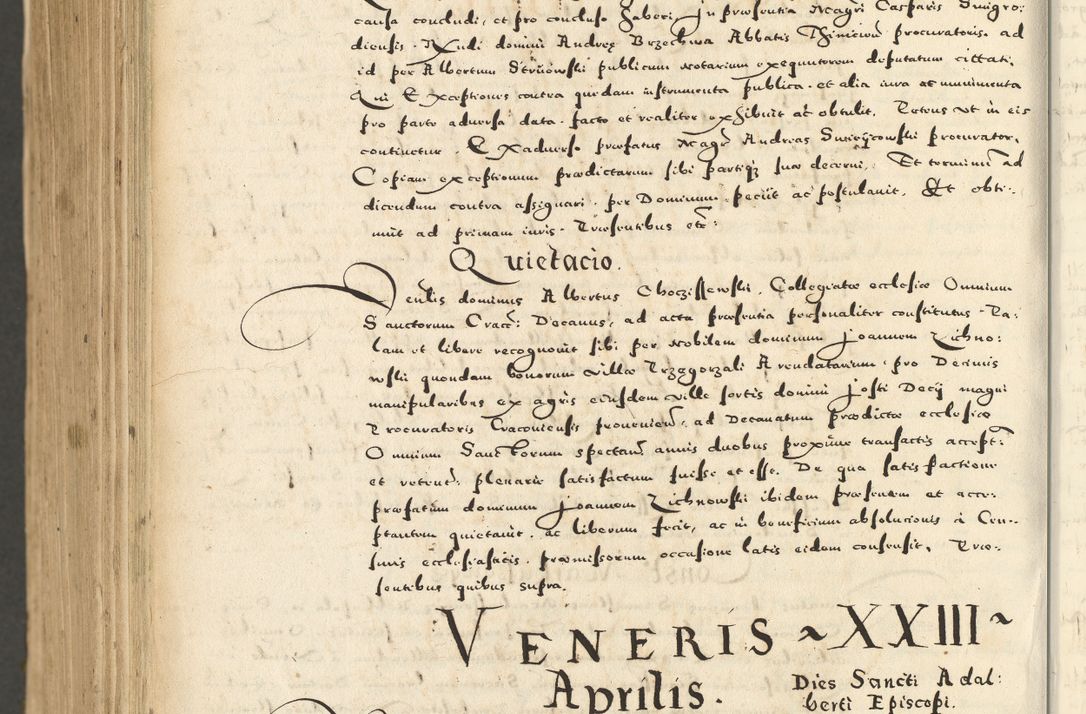 causa concludi, et pro concluso haberi. In præsentia Magri Casparis Snigro:
diensis. Nudi domini Andreę Brzechwa Abbatis Thinicien̄ procuratoris. ad
id per Albertum publicum notarium exequutorem deputatum cittati.
Qui Exceptiones contra quędam instrumenta publica. et alia iura ac munimenta
pro parte adversa data. facto et realiter exhibuit ac obtulit. Petens ut in eis
continetur. Exadverso præfatus Magr Andreas procurator,
Copiam exceptionum prædictarum sibi partiq; suæ decerni. Et terminū ad
dicendum contra assignari. per Dominum. peciit ac postulavit. Et obti:
nuit ad primam iuris. Præsentibus etc:
Quietacio.
Venlis dominus Albertus Choczissewski, Collegiatæ ecclesiæ Omnium
Sanctorum Cracc: Decanus, ad acta præsentia personaliter constitutus. Pa:
lam et libere recognovit sibi per Nobilem dominum Joannem Zichno:
wski quondam bonorum villæ Przegorzali Arendatarium. pro Decimis
manipularibus ex agris eiusdem villę sortis domini Josti Decij magni
Procuratoris Cracoviensis provenien̄. ad Decanatum prædictæ ecclesiæ
Omnium Sanctorum spectan̄ annis duobus proxime transactis accept:
et reten: plenarie satisfactum fuisse et esse. De qua satisfactione
præfatum dominum Joannem Zichnowski ibidem præsentem et acce:
ptantem quietavit. ac liberum fecit, ac in beneficium absolucionis à Cen:
suris ecclesiasticis. præmissorum occasione latis eidem consensit. Præ:
sentibus quibus supra.
VENERIS ~ XXIII ~
Aprilis. Dies Sancti Adal:
berti Episcopi.